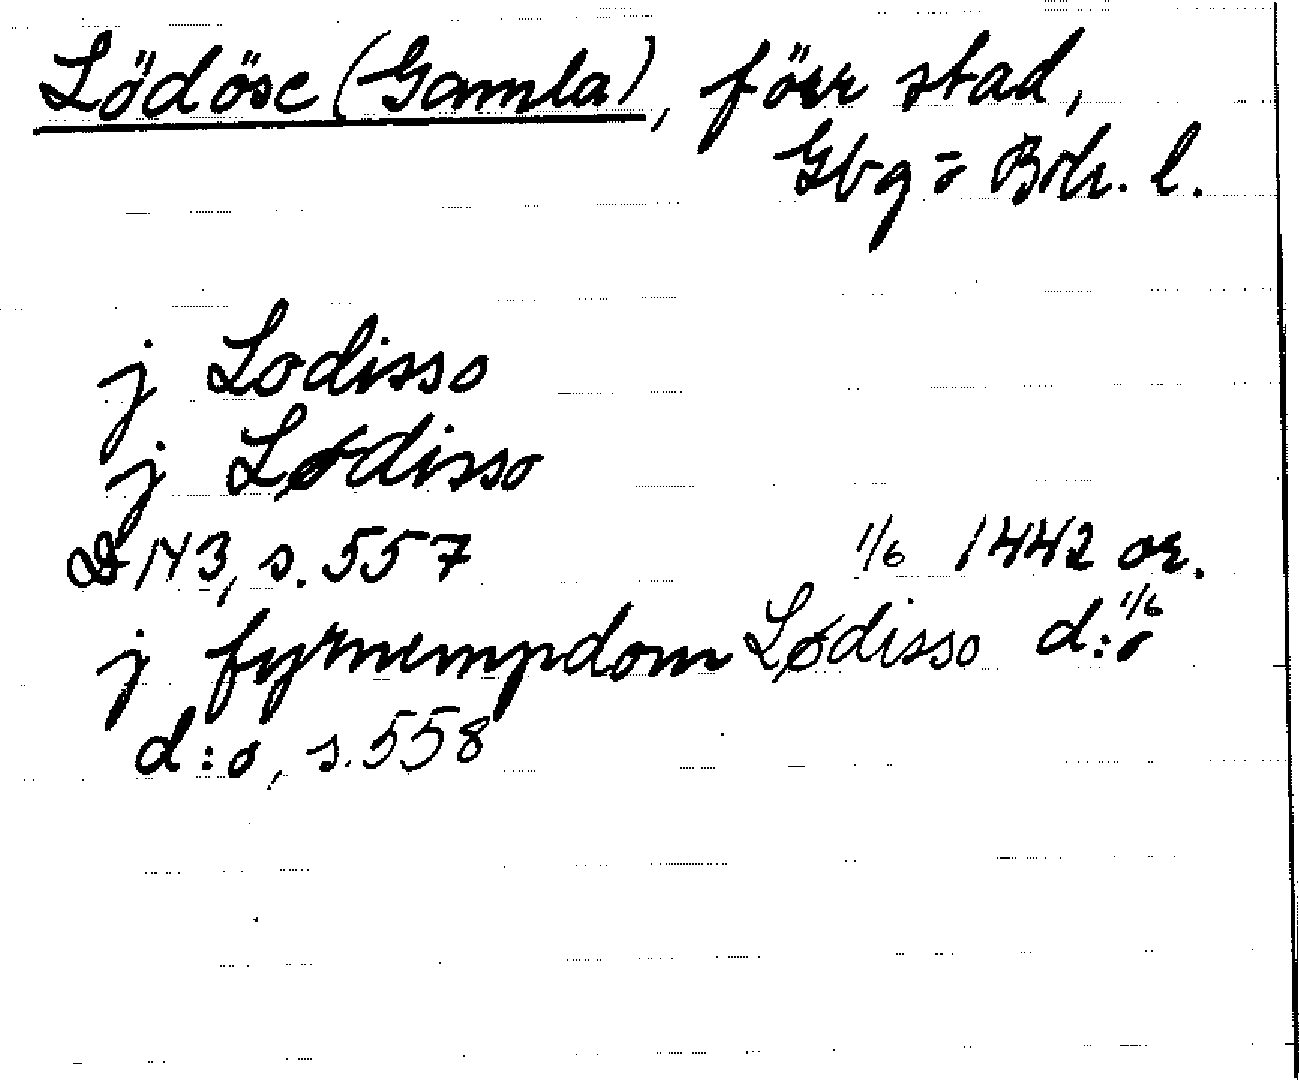 Lödöse (Gamla), förr stad,
Gbg o Boh. l.
j Lodisso
j Lødisso
D 143, s. 557 1/6 1442 or.
j fyrnempdom Lødisso d:o 1/6
d:o, s. 558